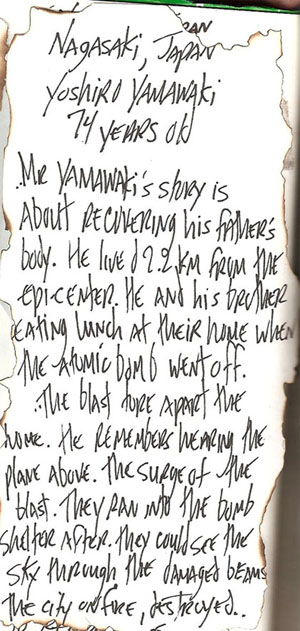 PAN
NAGASAKI, JAPAN
YOSHIRO YAMAWAKI
74 YEARS OLD
..MR YAMAWAKI'S STORY IS
ABOUT RECOVERING his FATHER'S
body. HE liVEd 2.2 KM FROM THE
EPI-CENTER. HE AND his bROTHER
EATING LUNCH AT THEIR HOME WHEN
THE ATOMIC bOMb WENT OFF.
..THE blAST TORE APART THE
HOME. HE REMEMBERS HEARING THE
PLANE AbOVE. THE SURGE OF THE
blAST. THEY RAN INTO THE bOMb
SHELTER AFTER. THEY COULD SEE THE
SKY THROUGH THE DAMAGED bEAMS
THE CITY ON FIRE, dESTROYED..